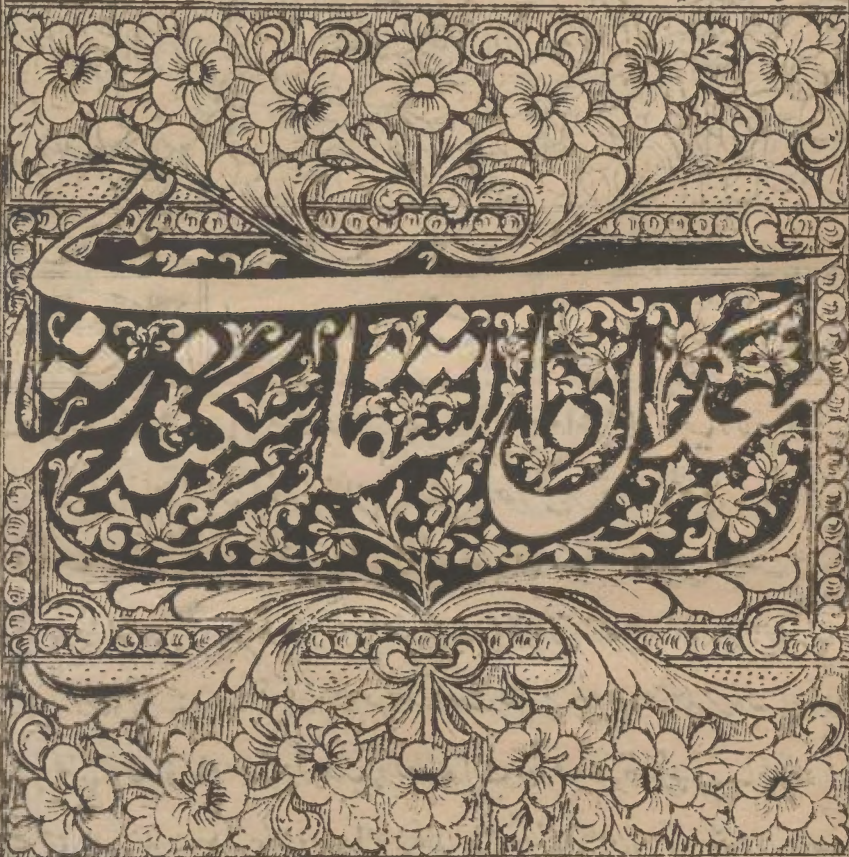 معدن الشفا سکندر شاہی